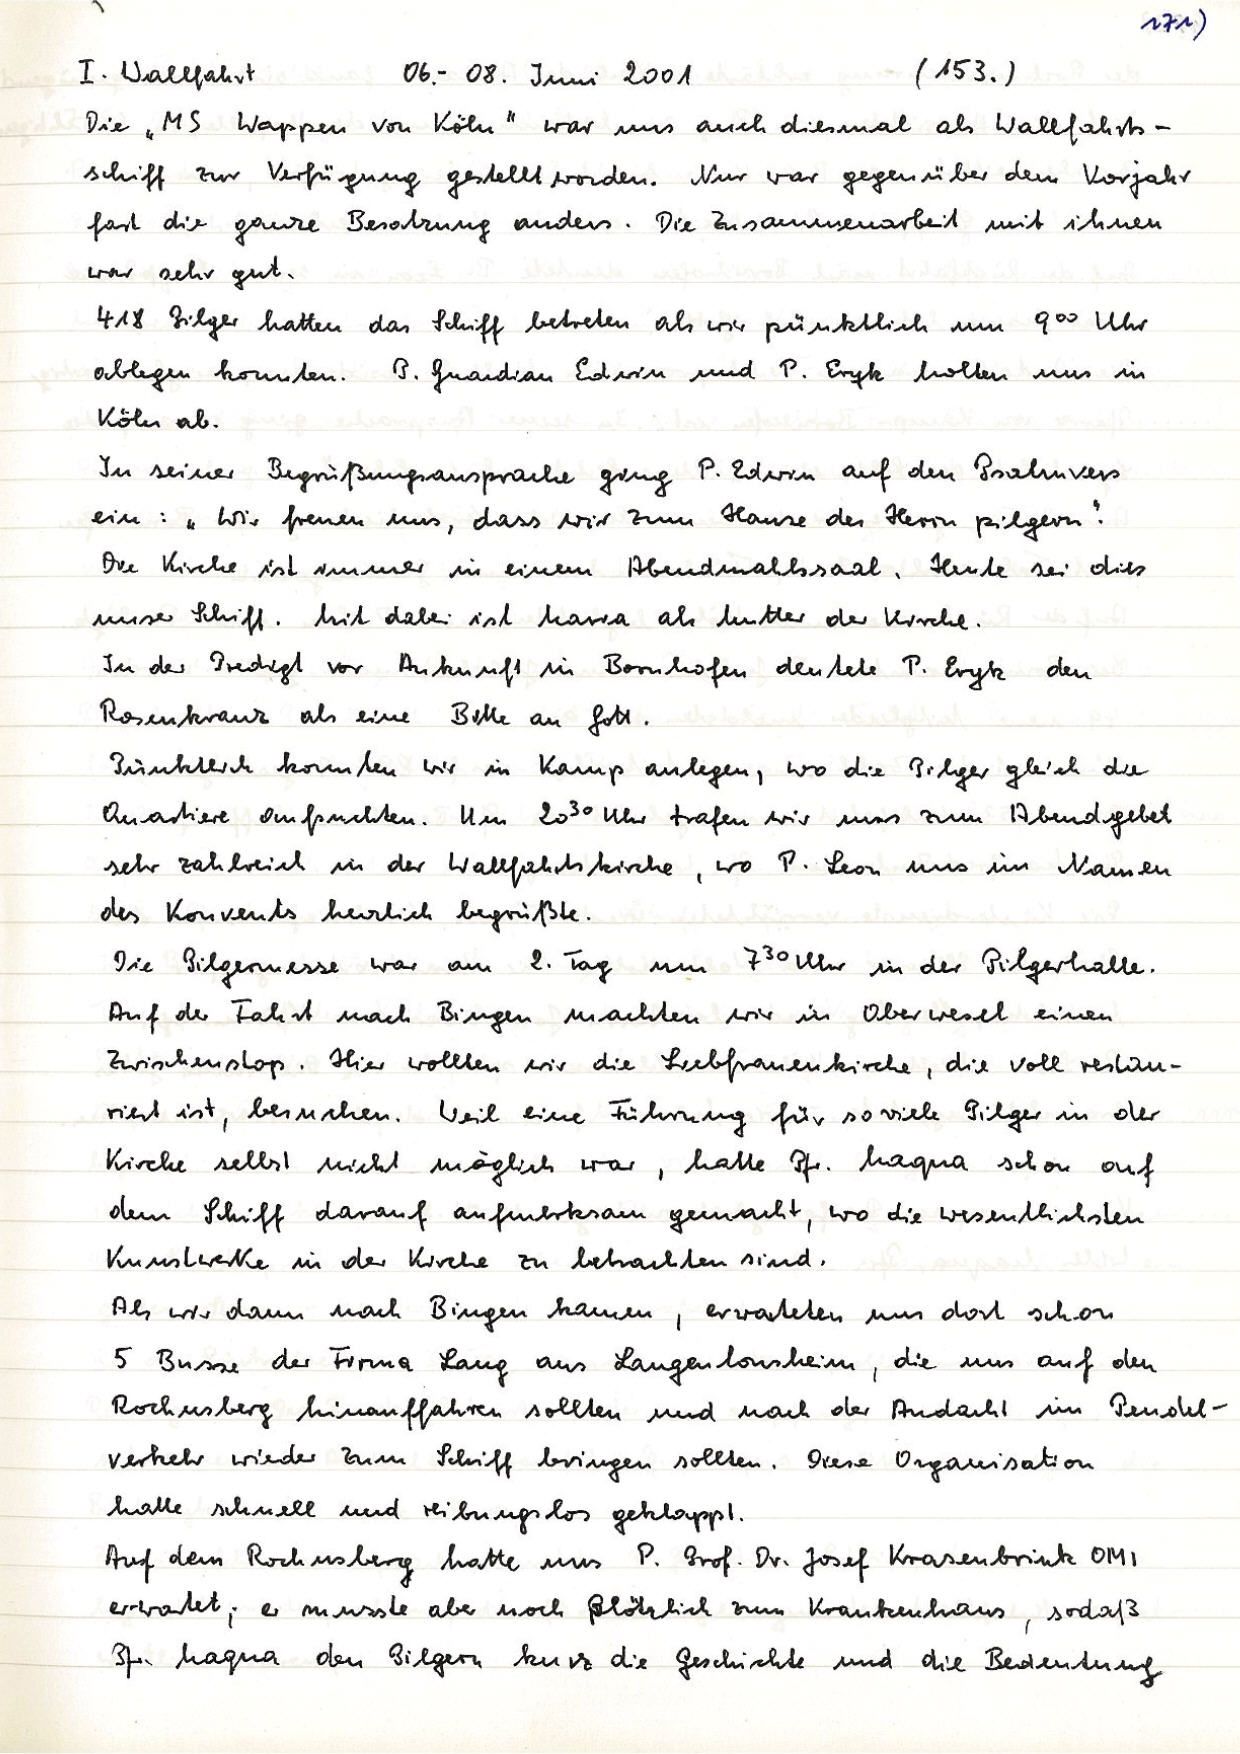 171)
I. Wallfahrt 06.- 08. Juni 2001 (153.)
Die „MS Wappen von Köln" war uns auch diesmal als Wallfahrts-
schiff zur Verfügung gestellt worden. Nur war gegenüber dem Vorjahr
fast die ganze Besatzung anders. Die Zusammenarbeit mit ihnen
war sehr gut.
418 Pilger hatten das Schiff betreten als wir pünktlich um 9⁰⁰ Uhr
ablegen konnten. P. Guardian Edwin und P. Eryk holten uns in
Köln ab.
In seiner Begrüßungsansprache ging P. Edwin auf den Psalmvers
ein: „Wir freuen uns, dass wir zum Hause des Herrn pilgern".
Die Kirche ist immer in einem Abendmahlssaal. Heute sei dies
unser Schiff. Mit dabei ist Maria als Mutter der Kirche.
In der Predigt vor Ankunft in Bornhofen deutete P. Eryk den
Rosenkranz als eine Bitte an Gott.
Pünktlich konnten wir in Kamp anlegen, wo die Pilger gleich die
Quartiere aufsuchten. Um 20³⁰ Uhr trafen wir uns zum Abendgebet
sehr zahlreich in der Wallfahrtskirche, wo P. Leon uns im Namen
des Konvents herzlich begrüßte.
Die Pilgermesse war am 2. Tag um 7³⁰ Uhr in der Pilgerhalle.
Auf der Fahrt nach Bingen machten wir in Oberwesel einen
Zwischenstop. Hier wollten wir die Liebfrauenkirche, die voll restau-
riert ist, besuchen. Weil eine Führung für soviele Pilger in der
Kirche selbst nicht möglich war, hatte Pfr. Maqua schon auf
dem Schiff darauf aufmerksam gemacht, wo die wesentlichsten
Kunstwerke in der Kirche zu betrachten sind.
Als wir dann nach Bingen kamen, erwarteten uns dort schon
5 Busse der Firma Lang aus Langenlonsheim, die uns auf den
Rochusberg hinauffahren sollten und nach der Andacht im Pendel-
verkehr wieder zum Schiff bringen sollten. Diese Organisation
hatte schnell und reibungslos geklappt.
Auf dem Rochusberg hatte uns P. Prof. Dr. Josef Krasenbrink OMI
erwartet; er musste aber noch plötzlich zum Krankenhaus, sodaß
Pfr. Maqua den Pilgern kurz die Geschichte und die Bedeutung